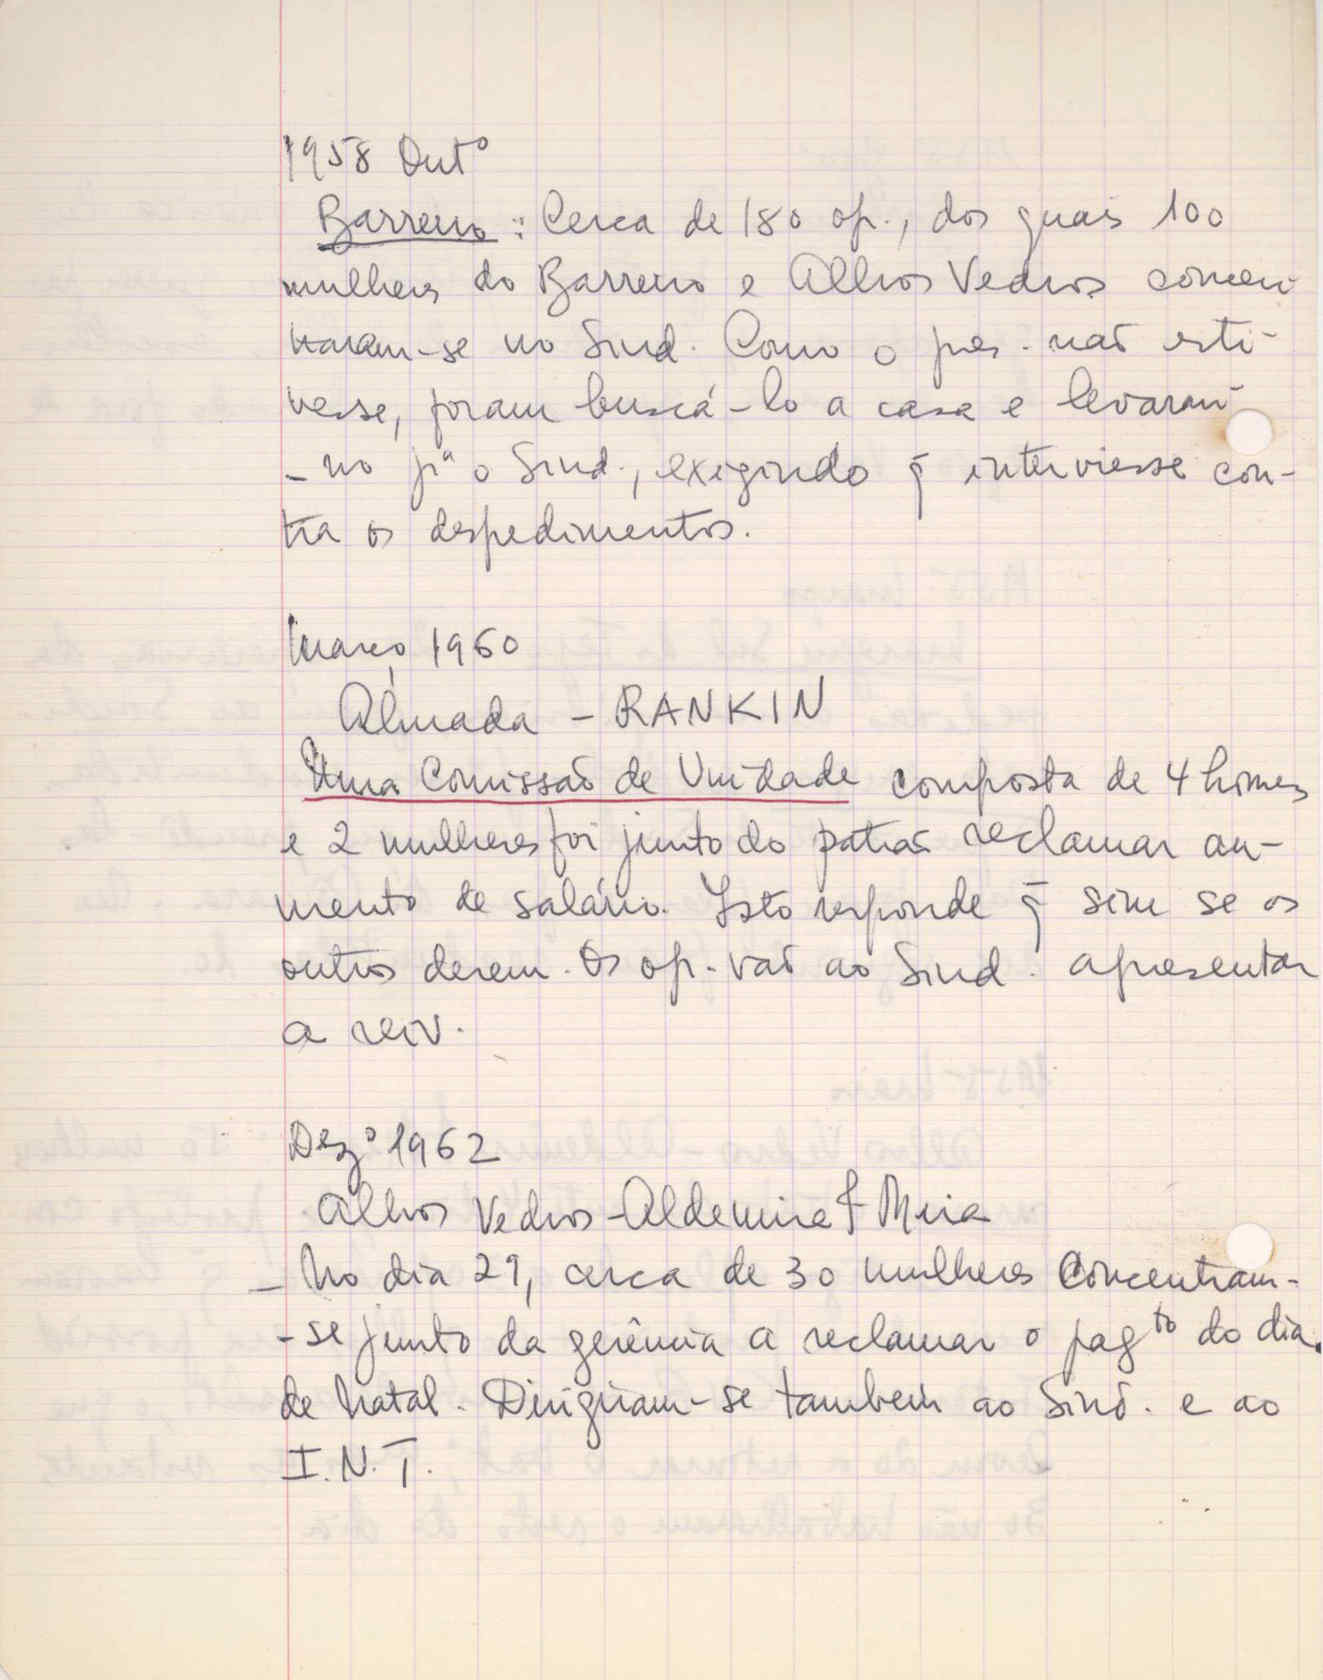 1958 Outº
Barreiro: Cerca de 180 op., dos quais 100
mulheres do Barreiro e Alhos Vedros concen-
traram-se no Sind. Como o pres. não esti-
vesse, foram buscá-lo a casa e levaram-
-no pª o Sind., exigindo q̃ interviesse con-
tra os despedimentos.
Março 1960
Almada - RANKIN
Uma Comissão de Unidade composta de 4 homens
e 2 mulheres foi junto do patrão reclamar au-
mento de salário. Isto responde q̃ sim se os
outros derem. Os op. vão ao Sind. apresentar
a reiv.
Dezº 1962
Alhos Vedros - Aldemira & Meira
- No dia 29, cerca de 30 mulheres concentram-
-se junto da gerência a reclamar o pagto do dia
de Natal. Dirigiram-se também ao Sind. e ao
I.N.T.